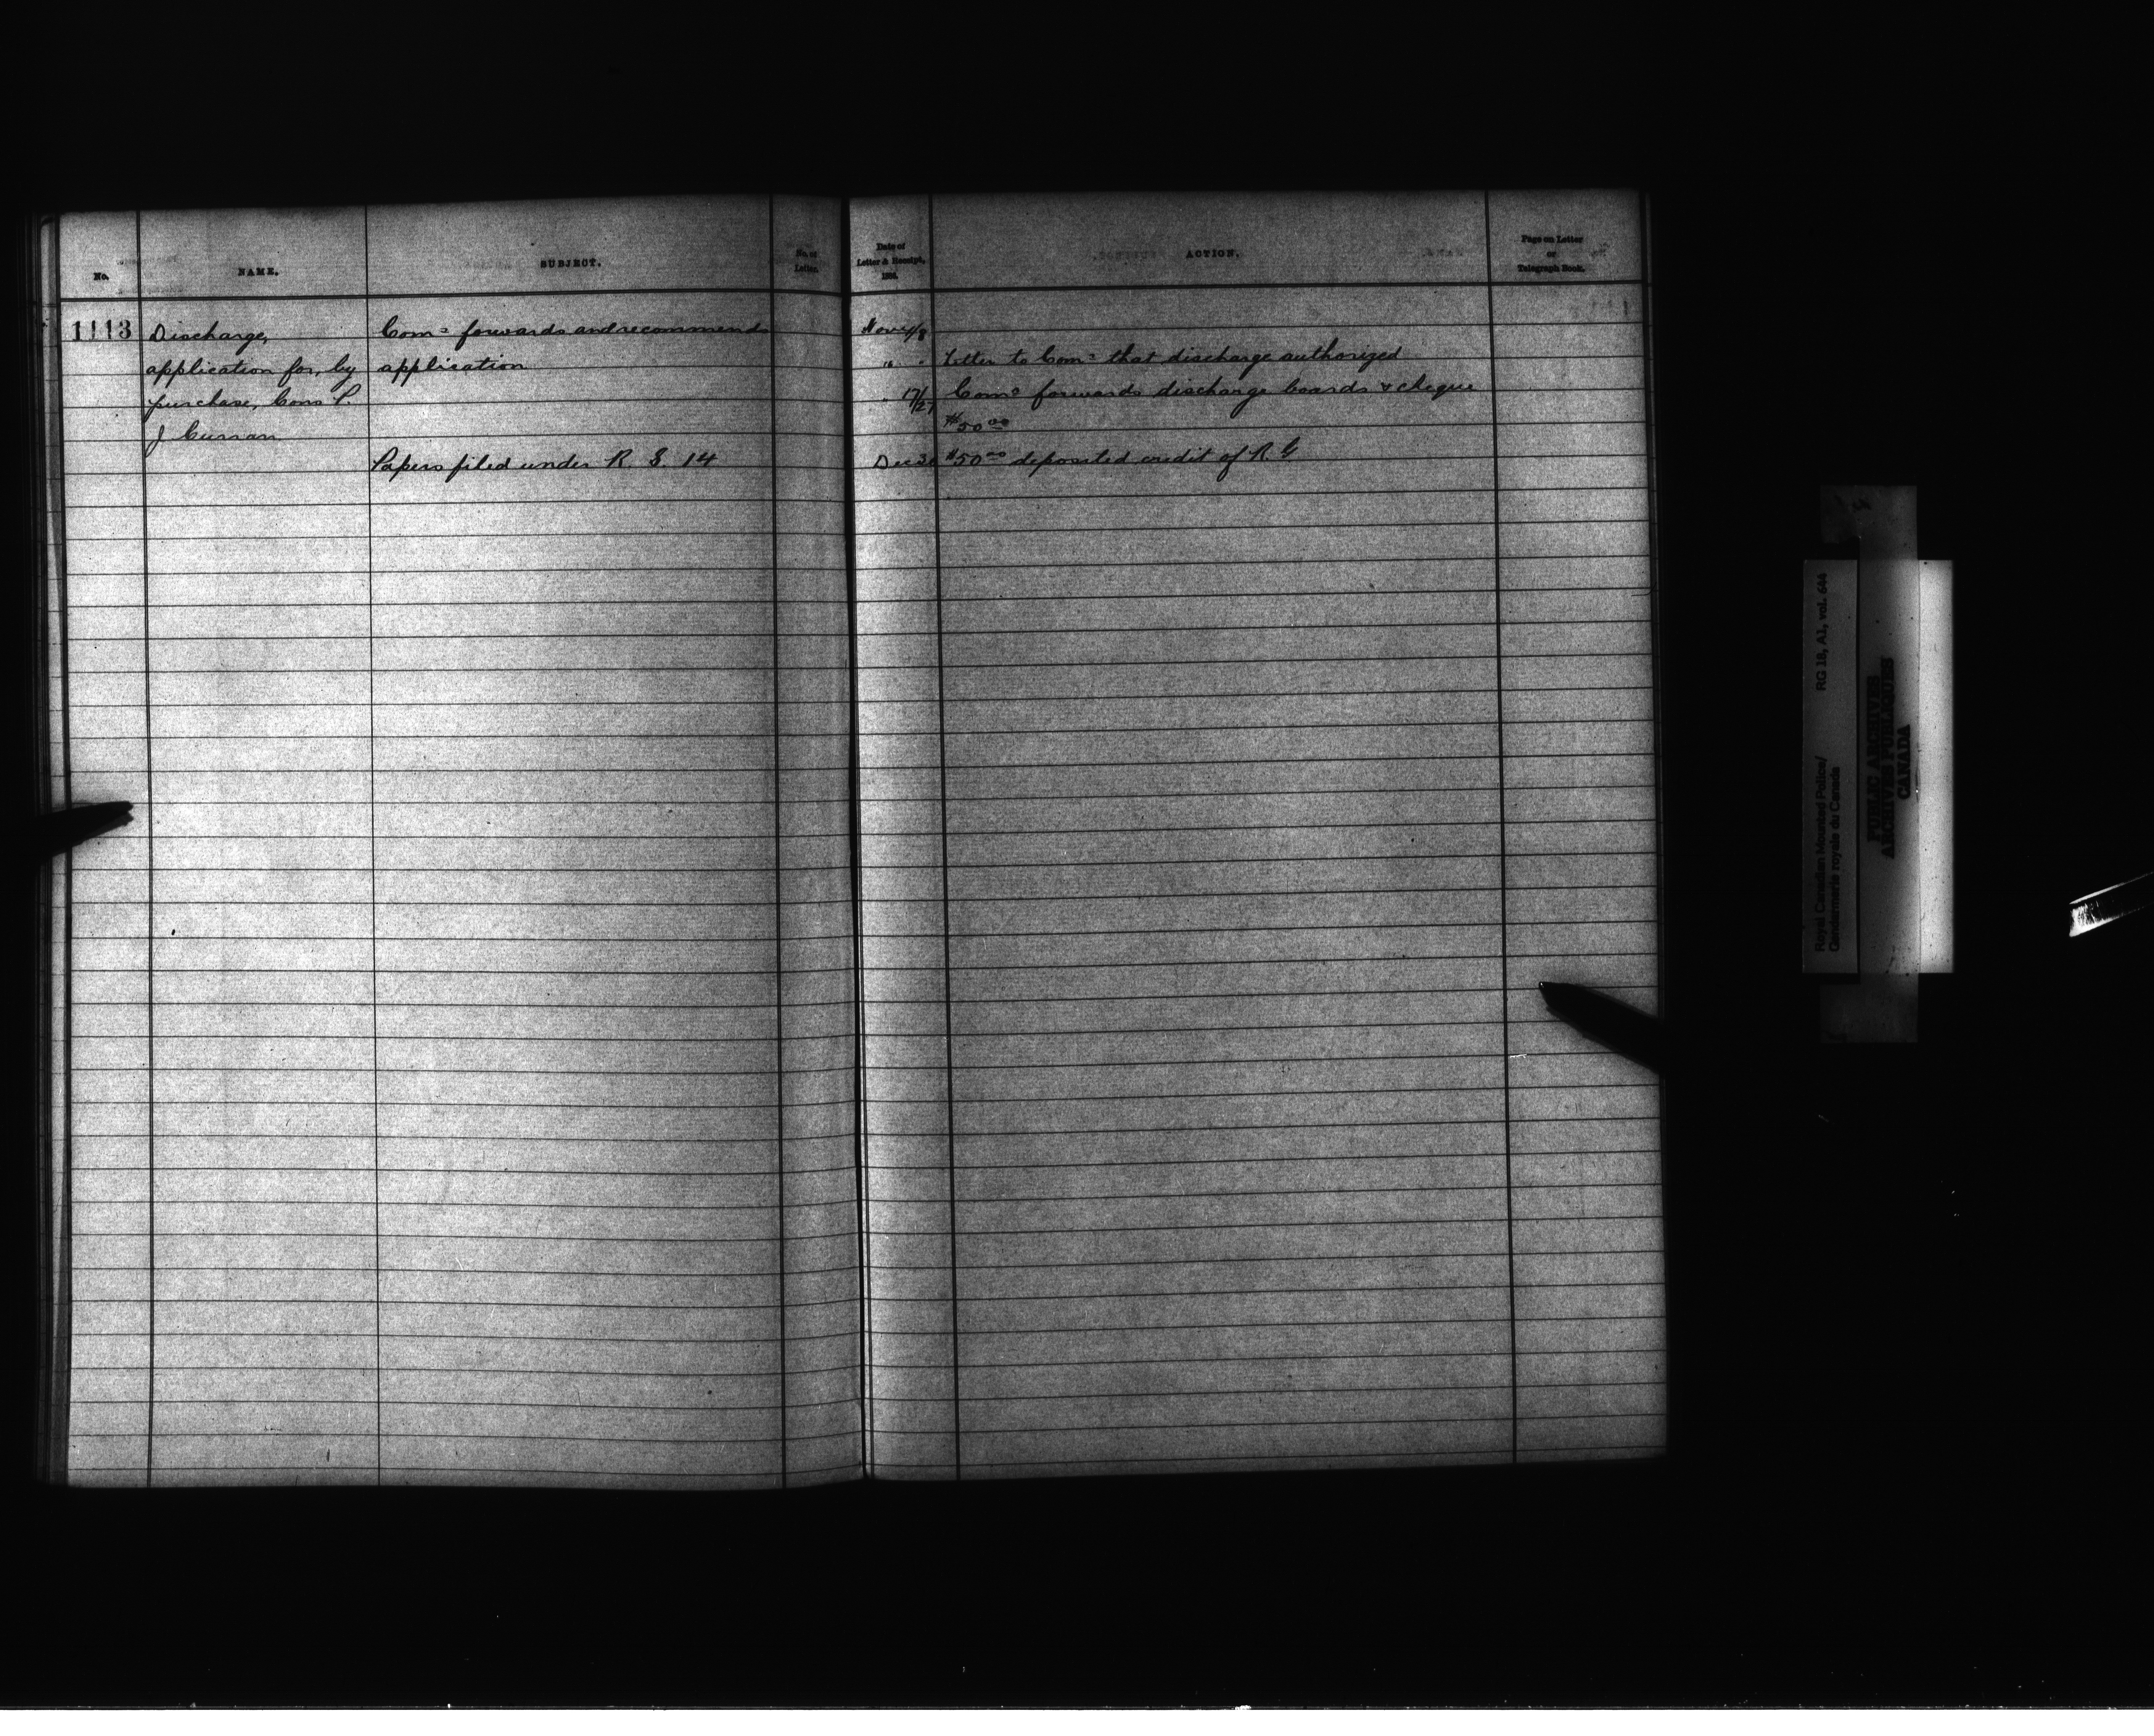 No.
NAME.
SUBJECT.
No. of
Letter.
Date of
Letter & Receipt,
ACTION.
Page on Letter
or
Telegraph Book.
1113
Discharge,
application for, by
purchase, Cons P.
J Curran
Comr forwards and recommends
application
Papers filed under R. S. 14
Nov 4/8
" "
" 17/27
Dec 30
Letter to Comr that discharge authorized
Comr forwards discharge boards & cheque
$50.00
$50.00 deposited credit of R. G
Royal Canadian Mounted Police/
Gendarmerie royale du Canada
RG 18, A1, vol. 644
PUBLIC ARCHIVES
ARCHIVES PUBLIQUES
CANADA